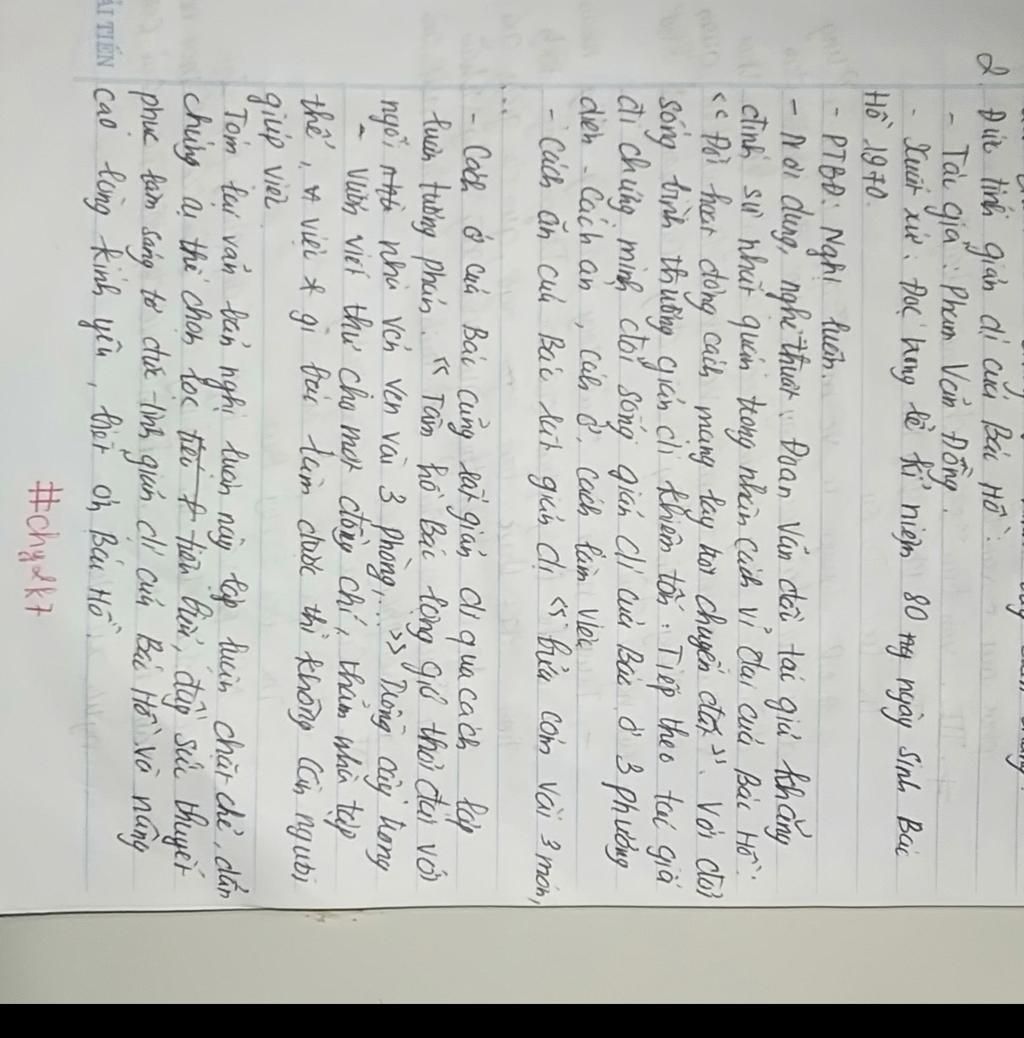 2. Đức tính giản dị của Bác Hồ.
- Tác giả: Phạm Văn Đồng.
- Xuất xứ: Đọc trong lễ kỉ niệm 80 ng ngày sinh Bác
Hồ 1970.
- PTBĐ: Nghị luận.
- Nội dung, nghệ thuật: Đoạn Văn đầu tác giả khẳng
định sự nhất quán trong nhân cách vĩ đại của Bác Hồ:
"Đời hoạt động cách mạng lay trời chuyển đất". Với đời
sống bình thường giản dị khiêm tốn. Tiếp theo tác giả
đi chứng minh đời sống giản dị của Bác ở 3 phương
diện - Cách ăn, cách ở, cách làm việc
- Cách ăn của Bác rất giản dị "bữa cơm vài 3 món,
...
- Cách ở của Bác cũng rất giản dị qua cách lập
luận tương phản. "Tâm hồn Bác lộng gió thời đại với
ngôi nhà nhỏ vẻn vẹn vài 3 phòng,..." trồng cây trong
- Vườn viết thư cho một đồng chí, thăm nhà tập
thể, việc gì Bác làm được thì không cần người
giúp việc
Tóm lại văn bản nghị luận này lập luận chặt chẽ, dẫn
chứng cụ thể chọn lọc tiêu biểu, đầy sức thuyết
phục làm sáng tỏ đức tính giản dị của Bác Hồ và nâng
cao lòng kính yêu, biết ơn Bác Hồ.
ẢI TIẾN